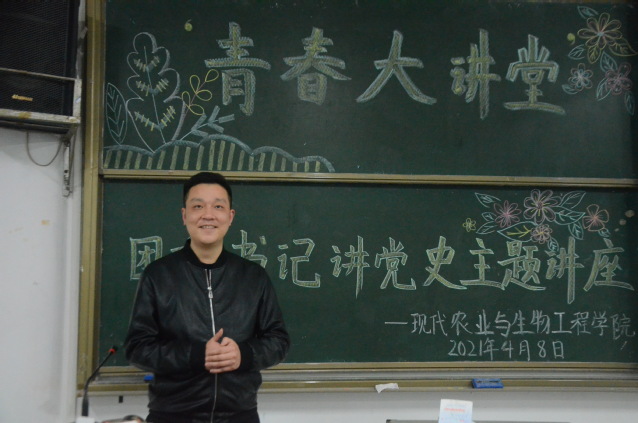 青春大讲堂
团 书记讲党史主题讲座
—现代农业与生物工程学院
2021年4月8日